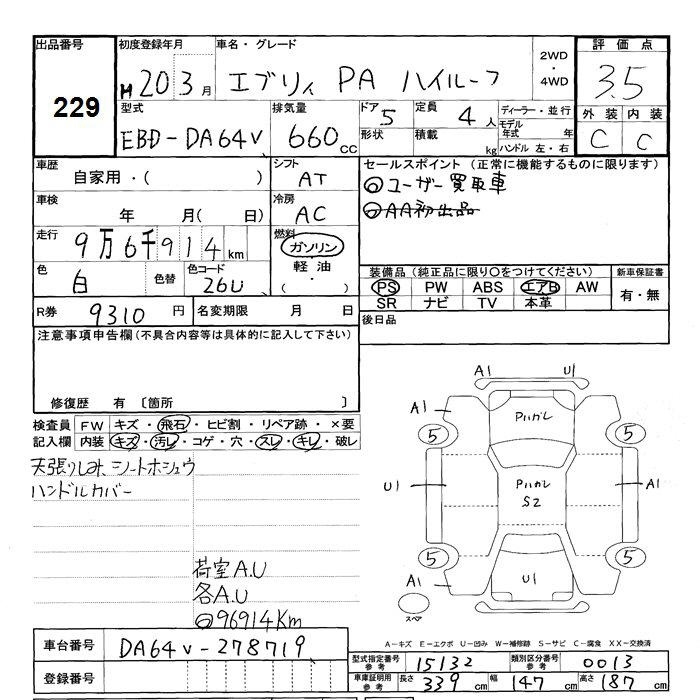 出品番号 初度登録年月 車名・グレード 2WD・4WD 評価点
229 H 20 3 月 エブリィ PA ハイルーフ 3.5
型式 排気量 ドア 5 定員 4 人 ディーラー・並行 外装 内装
EBD-DA64V 660 cc 形状 積載 kg モデル年式 年 C C
ハンドル 左・右
車歴 シフト セールスポイント (正常に機能するものに限ります)
自家用・( ) AT ◎ユーザー買取車
車検 冷房 ◎AA初出品
年 月( 日) AC
走行 9万6千914km 燃料
ガソリン
軽油
・( )
色 白 色替 色コード 26U
装備品(純正品に限り○をつけてください) 新車保証書
PS PW ABS エアB AW 有・無
SR ナビ TV 本革
R券 9310 円 名変期限 月 日 後日品
注意事項申告欄(不具合内容等は具体的に記入して下さい)
修復歴 有 〔箇所 〕
検査員 FW キズ・飛石・ヒビ割・リペア跡・×要
記入欄 内装 キズ・汚レ・コゲ・穴・スレ・キレ・破レ
天張りしみ、シートホシュウ
ハンドルカバー
荷室A.U
各A.U
◎96914Km
A1 U1
A1 Pハガレ
5 5
U1 Pハガレ A1
S2
5 5
A1 U1
スペア
A-キズ E-エクボ U-凹み W-補修跡 S-サビ C-腐食 XX-交換済
車台番号 DA64V-278719
登録番号
型式指定番号 参考 15132 類別区分番号 参考 0013
車庫証明用 参考 長さ 339 cm 幅 147 cm 高さ 187 cm